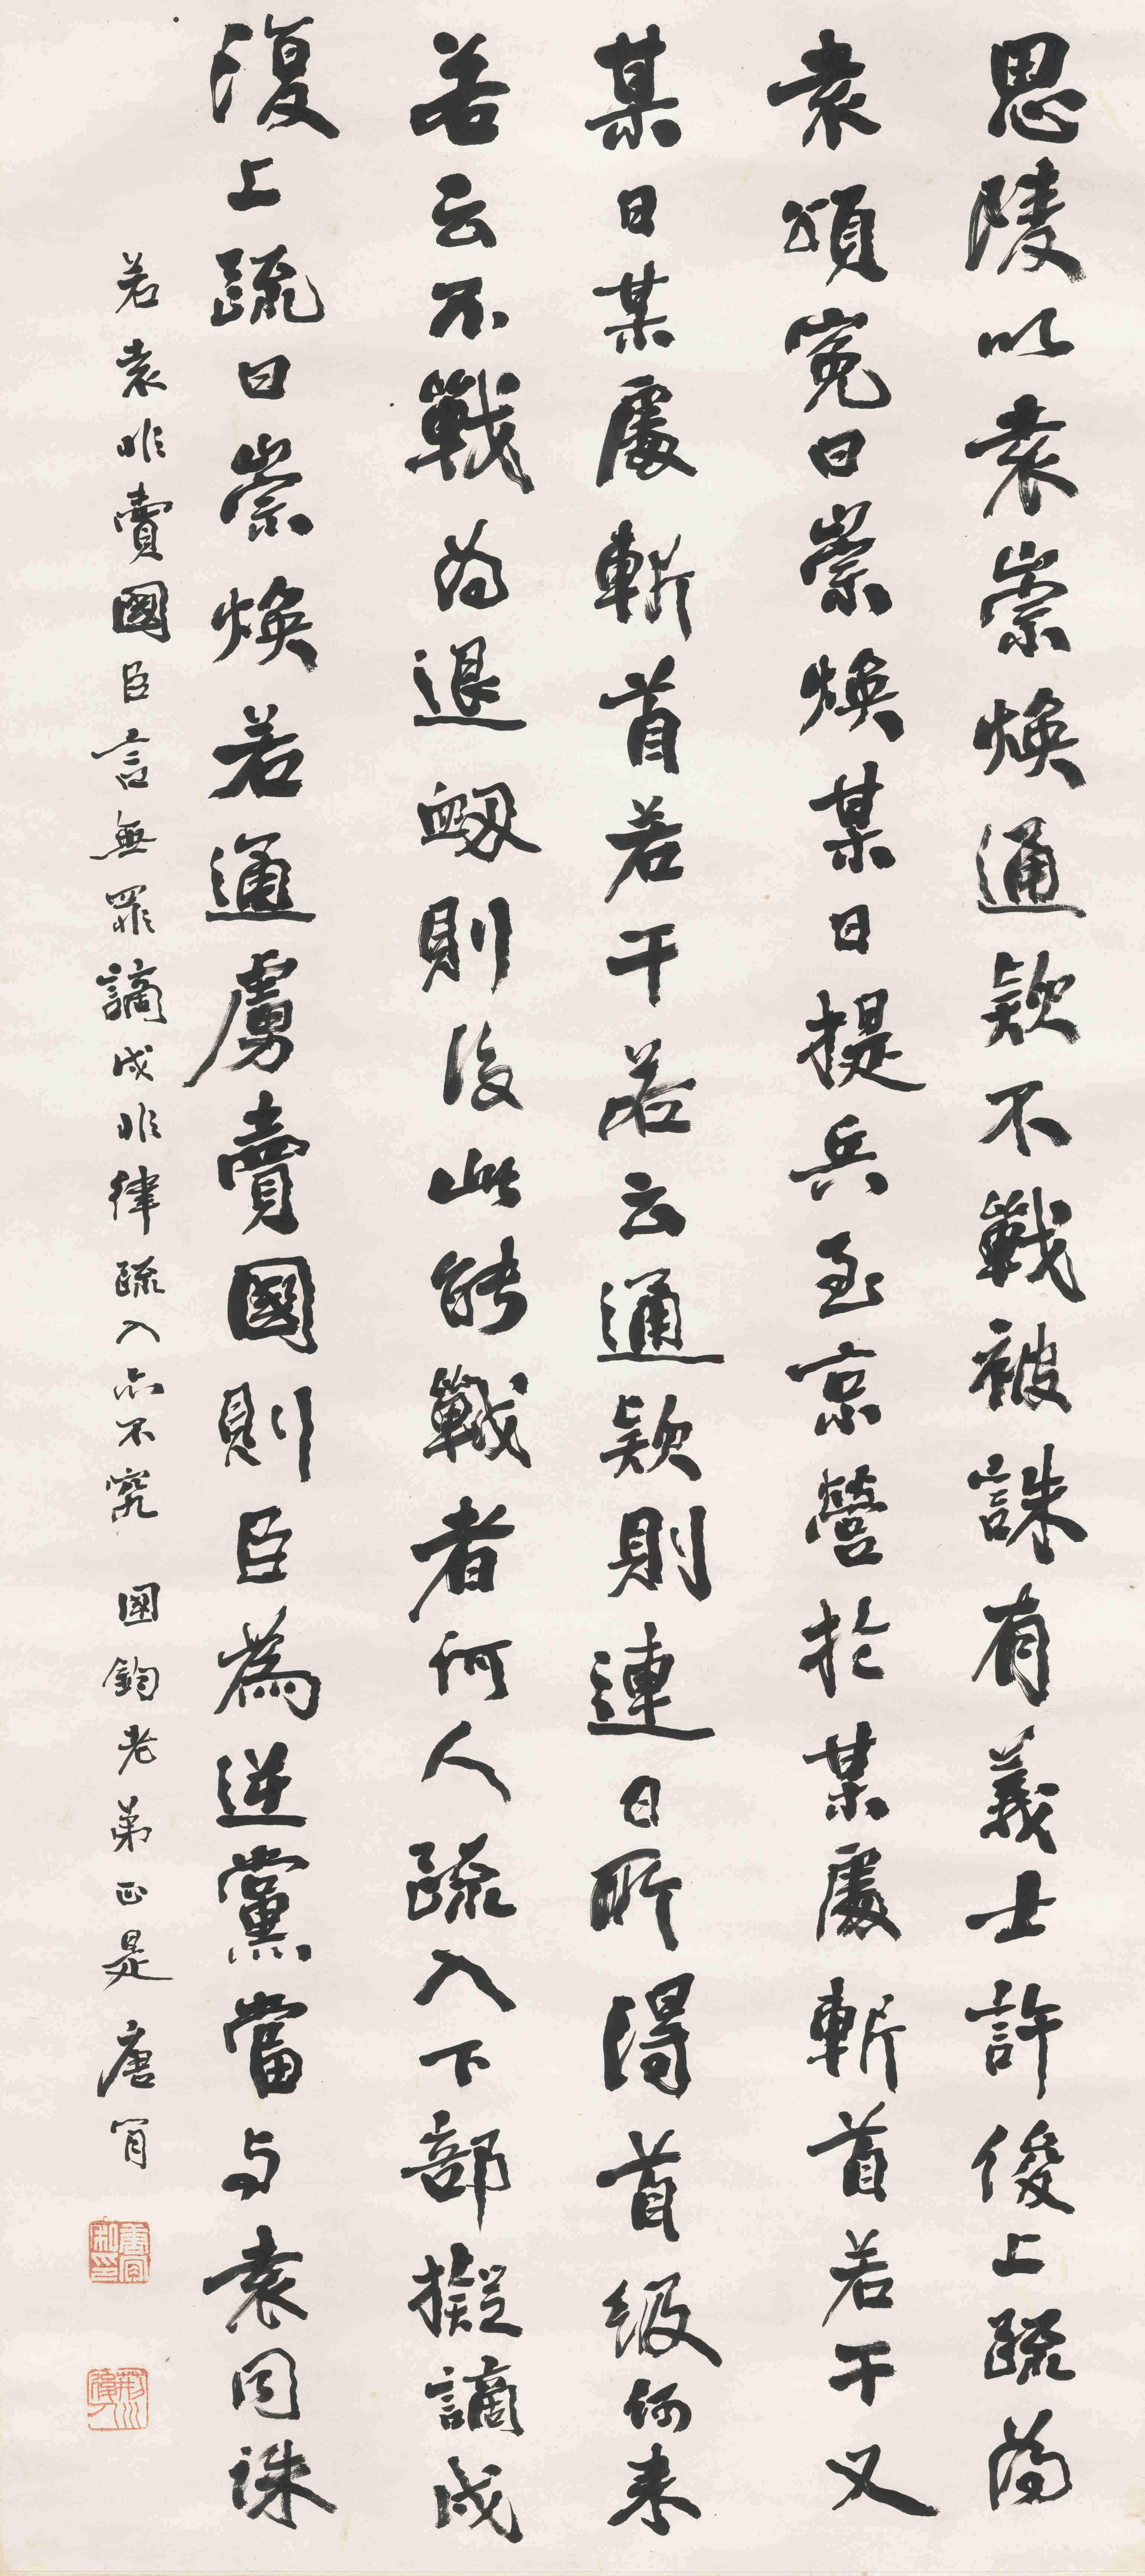 思陵以袁崇煥通款不戰被誅有義士許俊上疏為
袁頌冤曰崇煥某日提兵至京營於某處斬首若干又
某日某處斬首若干若云通款則連日所得首級何來
若云不戰為退衂則後此能戰者何人疏入下部擬謫戍
復上疏曰崇煥若通虜賣國則臣為逆黨當与袁同誅
若袁非賣國臣言無罪謫戍非律疏入亦不究 國鈞老弟正是 唐肎
唐肎私印
荊川後人